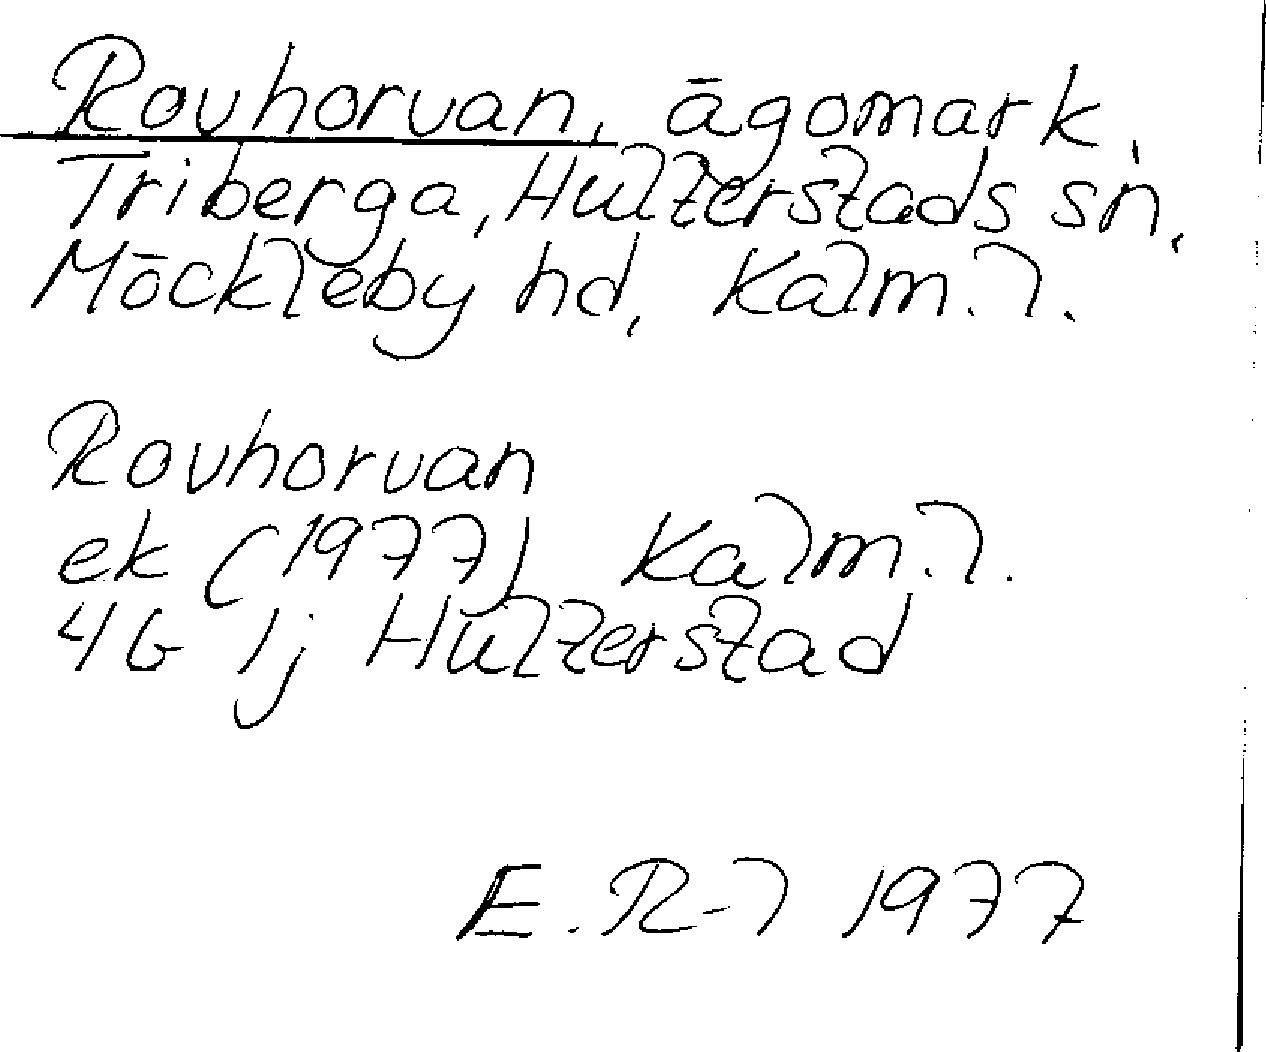 Rovhorvan, ägomark,
Triberga, Hulterstads sn,
Möckleby hd, Kalm. l.
Rovhorvan
ek (1977) Kalm. l.
4G 1j Hulterstad
E. R-l 1977